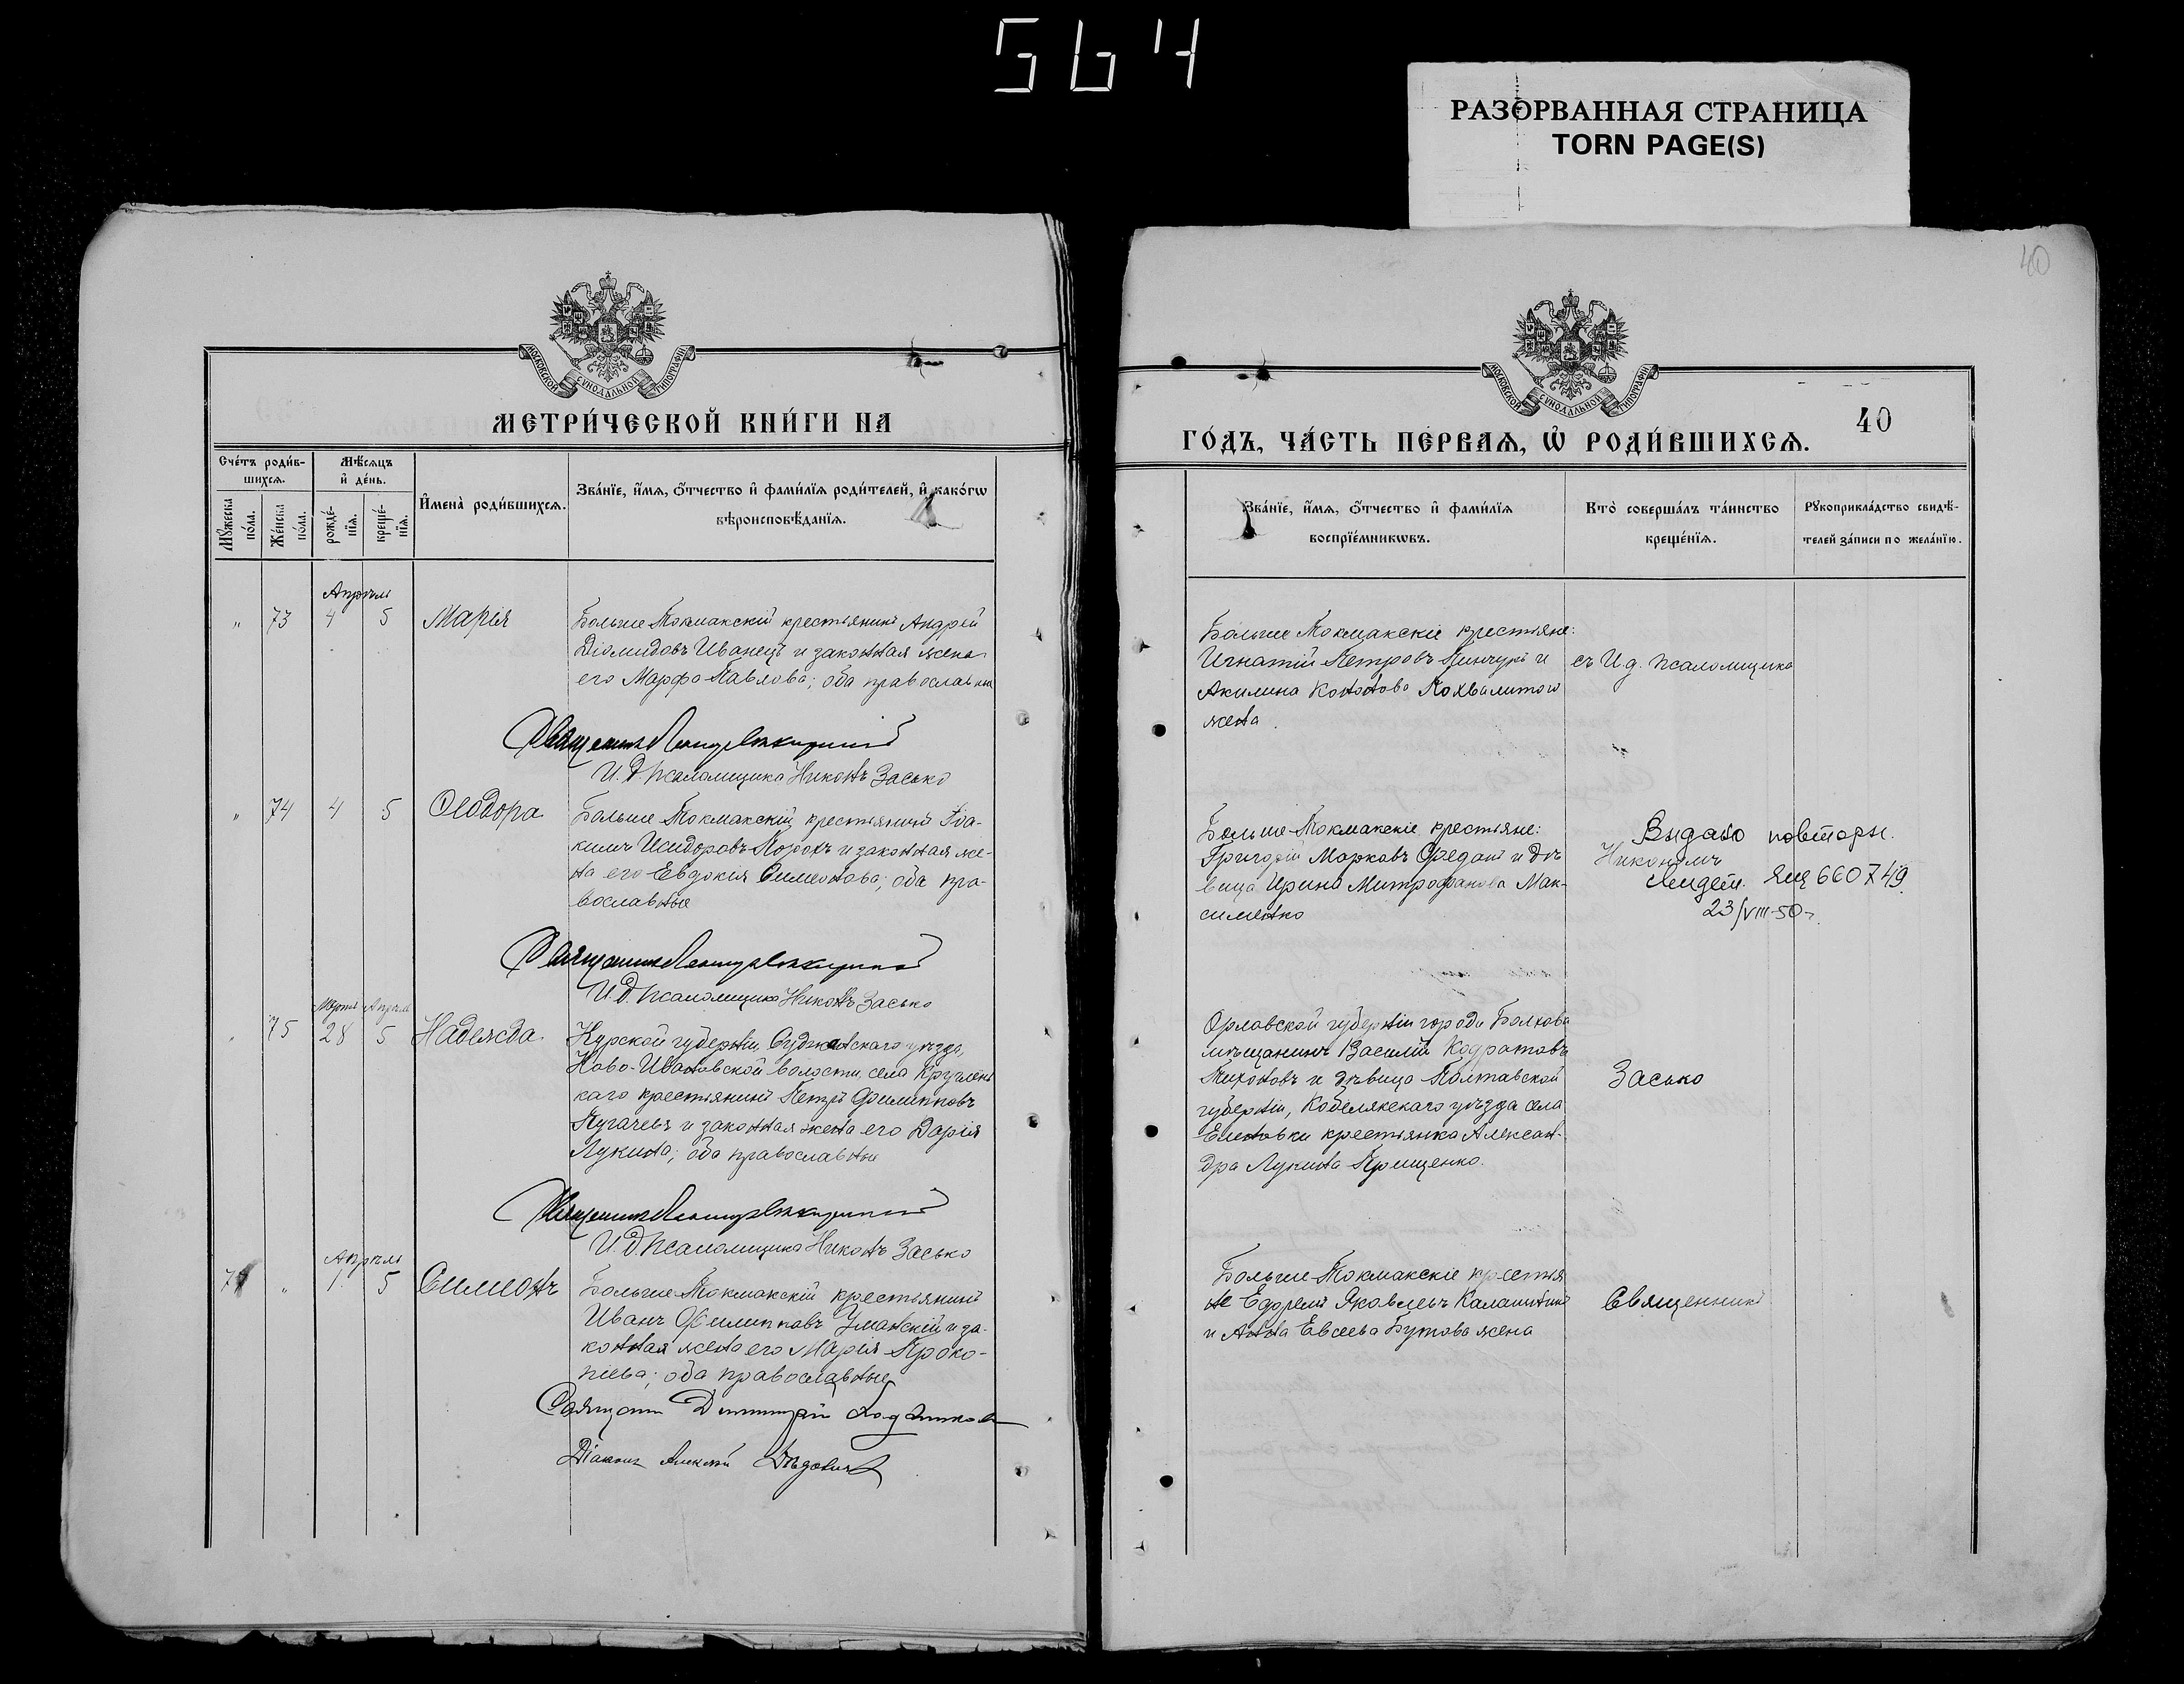 564
РАЗОРВАННАЯ СТРАНИЦА
TORN PAGE(S)
МОСКОВСКОЙ СУНОДАЛЬНОЙ ТИПОГРАФІИ
МЕТРИ́ЧЕСКОЙ КНИ́ГИ НА
Сче́тъ роди́в-
шихсѧ.
Мѣ́сѧцъ
и҆ де́нь.
Мꙋ́жеска
по́ла.
Же́нска
по́ла.
рожде́-
нїѧ.
креще́-
нїѧ.
И҆мена̀ роди́вшихсѧ.
Зва́нїе, и҆́мѧ, ѻ҆́тчество и҆ фами́лїѧ роди́телей, и҆ како́гѡ
вѣроисповѣ́данїѧ.
Апрѣль
" 73 4 5 Марія
Больше Токмакскій крестьянинъ Андрей
Діомидовъ Иванецъ и законная жена
его Марфа Павлова; оба православные
Священникъ
И. д. псаломщика Никонъ Засько
" 74 4 5 Ѳеодора
Больше Токмакскій крестьянинъ Іоа-
кимъ Исидоровъ Порохъ и законная же-
на его Евдокія Симеонова; оба пра-
вославные
Священникъ
И. д. псаломщика Никонъ Засько
Марта Апрѣль
75 28 5 Надежда
Курской губерніи, Суджанскаго уѣзда,
Ново-Ивановской волости, села
каго крестьянинъ Петръ Филипповъ
Пугачевъ и законная жена его Дарія
Лукина; оба православные
Священникъ
И. д. псаломщика Никонъ Засько
Апрѣль
" 1 5 Симеонъ
Больше-Токмакскій крестьянинъ
Иванъ Филипповъ Уманскій и за-
конная жена его Марія Проко-
піева; оба православные
Священ. Димитрій
Діаконъ Алексѣй
40
МОСКОВСКОЙ СУНОДАЛЬНОЙ ТИПОГРАФІИ
40
ГО́ДЪ, ЧА́СТЬ ПЕ́РВАѦ, Ѡ҆ РОДИ́ВШИХСѦ.
Зва́нїе, и҆́мѧ, ѻ҆́тчество и҆ фами́лїѧ
воспрїе́мникѡвъ.
Кто̀ соверша́лъ та́инство
креще́нїѧ.
Рꙋкоприкла́дство свидѣ́-
телей за́писи по жела́нїю.
Больше Токмакскіе крестьяне:
Игнатій Петровъ Пинчукъ и
Акилина Кононова Похвалитова
жена
съ И. д. псаломщика
Больше-Токмакскіе крестьяне:
Григорій Марковъ Середанъ и дѣ-
вица Ирина Митрофанова Мак-
сименко
Никономъ
Выдано повторн.
свидет. ЯЩ 660749
23/VIII-50 г.
Орловской губерніи города Болхова
мѣщанинъ Василій Кодратовъ
Тихоновъ и дѣвица Полтавской
губерніи, Кобелякскаго уѣзда села
крестьянка Алексан-
дра Лукина Прищенко.
Засько
Больше-Токмакскіе крестья
не Ефремъ Яковлевъ Калашник
и Анна Евсеева Бутова жена
Священникъ